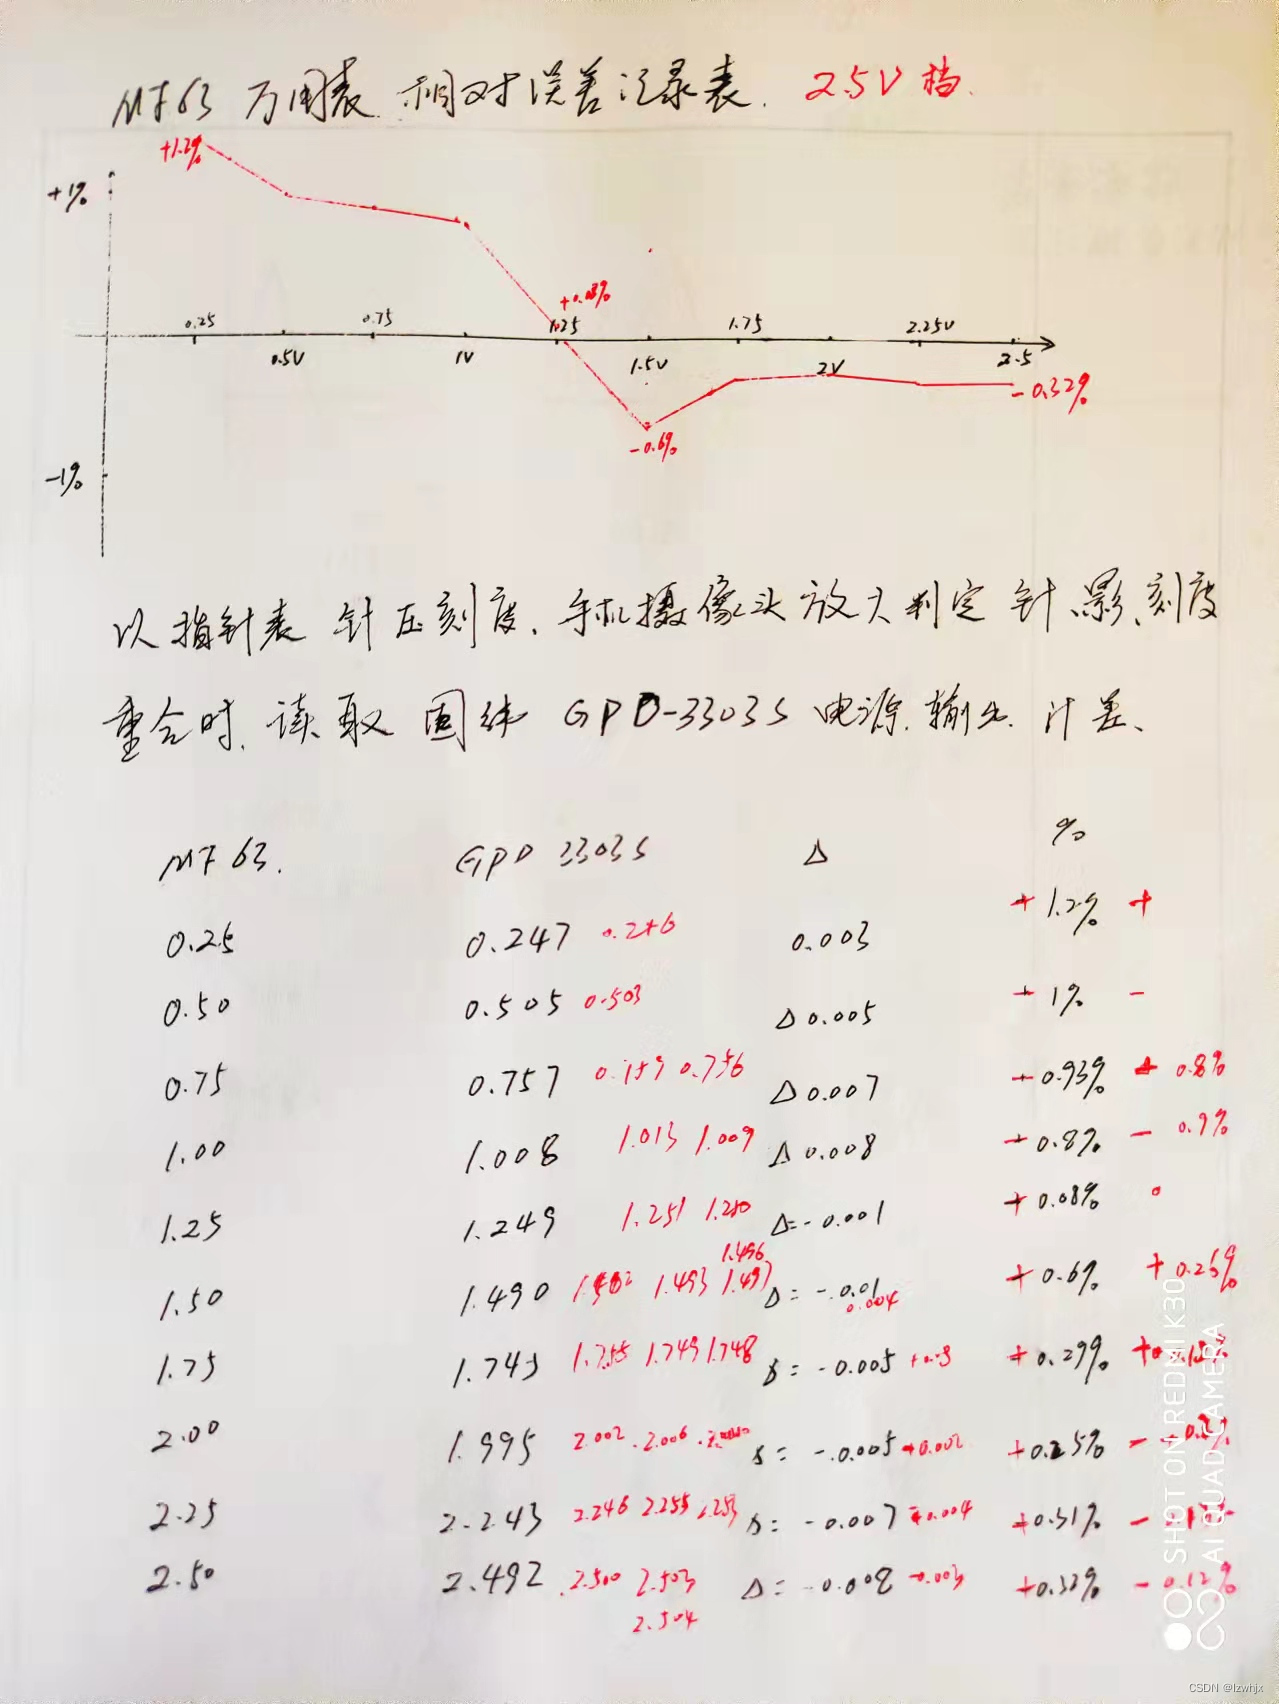 MF63 万用表 相对误差记录表. 2.5V 档.
+1.2%
+1%
+0.08%
0.25 0.75 1.25 1.75 2.25V
0.5V 1V 1.5V 2V 2.5
-0.32%
-0.6%
-1%
以指针表 针压刻度、手机摄像头放大判定 针、影、刻度
重合时、读取 固纬 GPD-3303S 电源.输出. 计差、
%
MF63. GPD 3303S Δ
0.25 0.247 0.246 0.003 +1.2% +
0.50 0.505 0.503 Δ0.005 -1% -
0.75 0.757 0.759 0.756 Δ0.007 -0.93% 0.8%
1.00 1.008 1.013 1.009 Δ0.008 -0.8% - 0.9%
1.25 1.249 1.251 1.250 Δ=-0.001 +0.08% 0
1.496
1.50 1.490 1.493 1.497 Δ=-0.01 +0.6% +0.26%
0.004
1.75 1.745 1.755 1.749 1.748 Δ=-0.005 +0.29%
2.00 1.995 2.002 2.006 Δ=-0.005 +0.002 +0.25%
2.25 2.243 2.246 2.255 2.253 Δ=-0.007 0.004 +0.31%
2.50 2.492 2.500 2.503 Δ=-0.008 -0.003 +0.32% -0.12%
2.504
SHOT ON REDMI K30
AI QUAD CAMERA
CSDN @lzwhjx